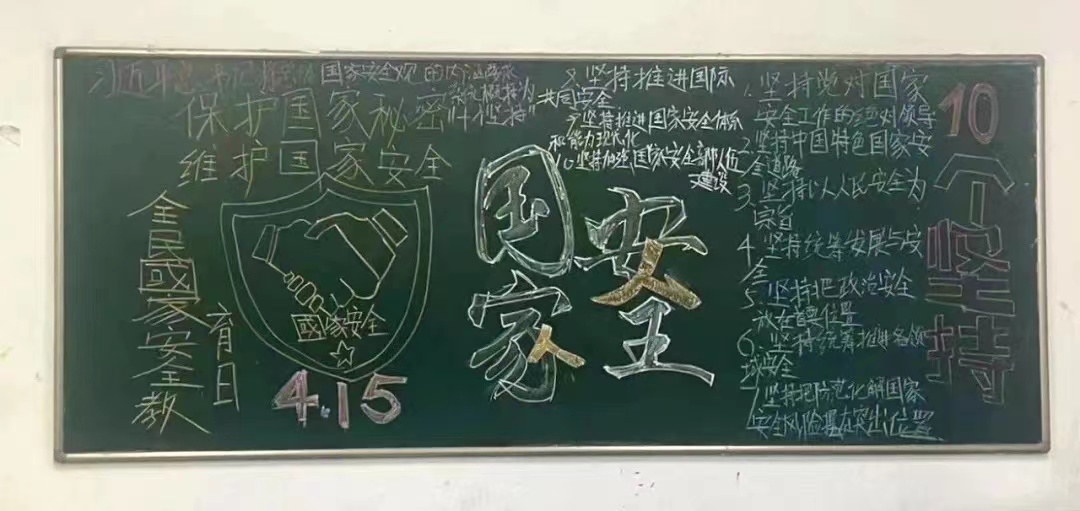 习近平总书记将总体国家安全观的内涵要求
概括为
“十个坚持”
保护国家秘密
维护国家安全
全民國家安全教
育日
國家安全
4.15
国家
安全
8、坚持推进国际
共同安全
9 坚持推进国家安全体系
和能力现代化
10 坚持加强国家安全部人位
建设
1. 坚持党对国家
安全工作的绝对领导
2 坚持中国特色国家安
全道路
3、坚持以人民安全为
宗旨
4、坚持统筹发展与安
全
5、坚持把政治安全
放在首要位置
6、坚持统筹推进各领
域安全
7 坚持把防范化解国家
安全风险摆在突出位置
10个坚持